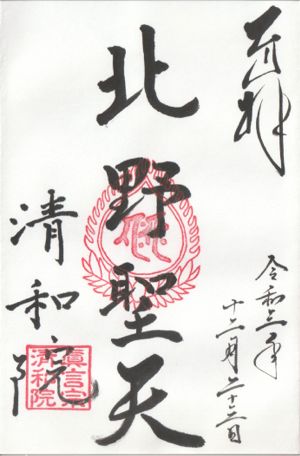 奉拝
令和三年
十二月二十三日
北野聖天
清和院
眞言宗
清和院